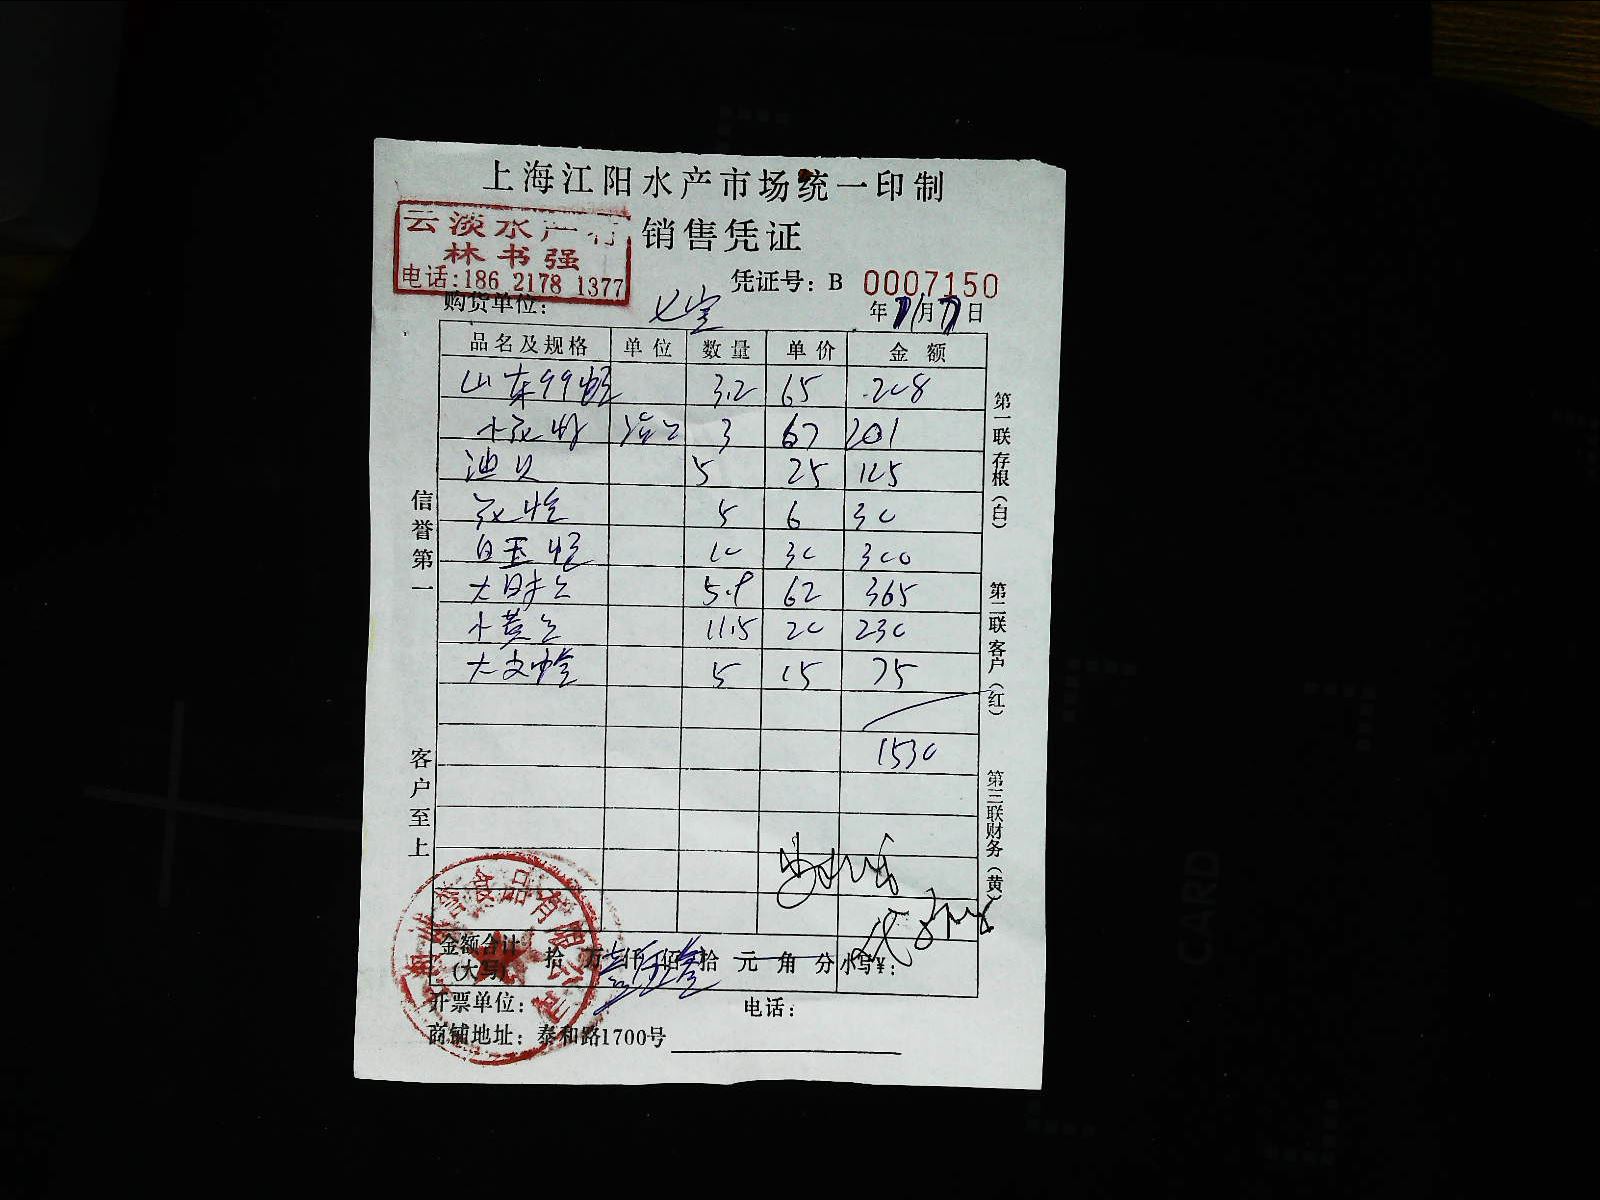 上海江阳水产市场统一印制
云淡水产行
销售凭证
林书强
电话:186 2178 1377
凭证号: B 0007150
购货单位: 七宝
年 11月 7日
品名及规格 单位 数量 单价 金额
山东99蛏 3.2 65 208
3 67 201
油贝 5 25 125
花蛤 5 6 30
白玉蛏 10 30 300
5.9 62 365
小黄 11.5 20 230
大文蛤 5 15 75
1530
信誉第一
客户至上
第一联存根(白)
第二联客户(红)
第三联财务(黄)
食品有限公司
金额合计(大写) 拾 万 仟 佰 拾 元 角 分 小写¥:
开票单位:
电话:
商铺地址: 泰和路1700号